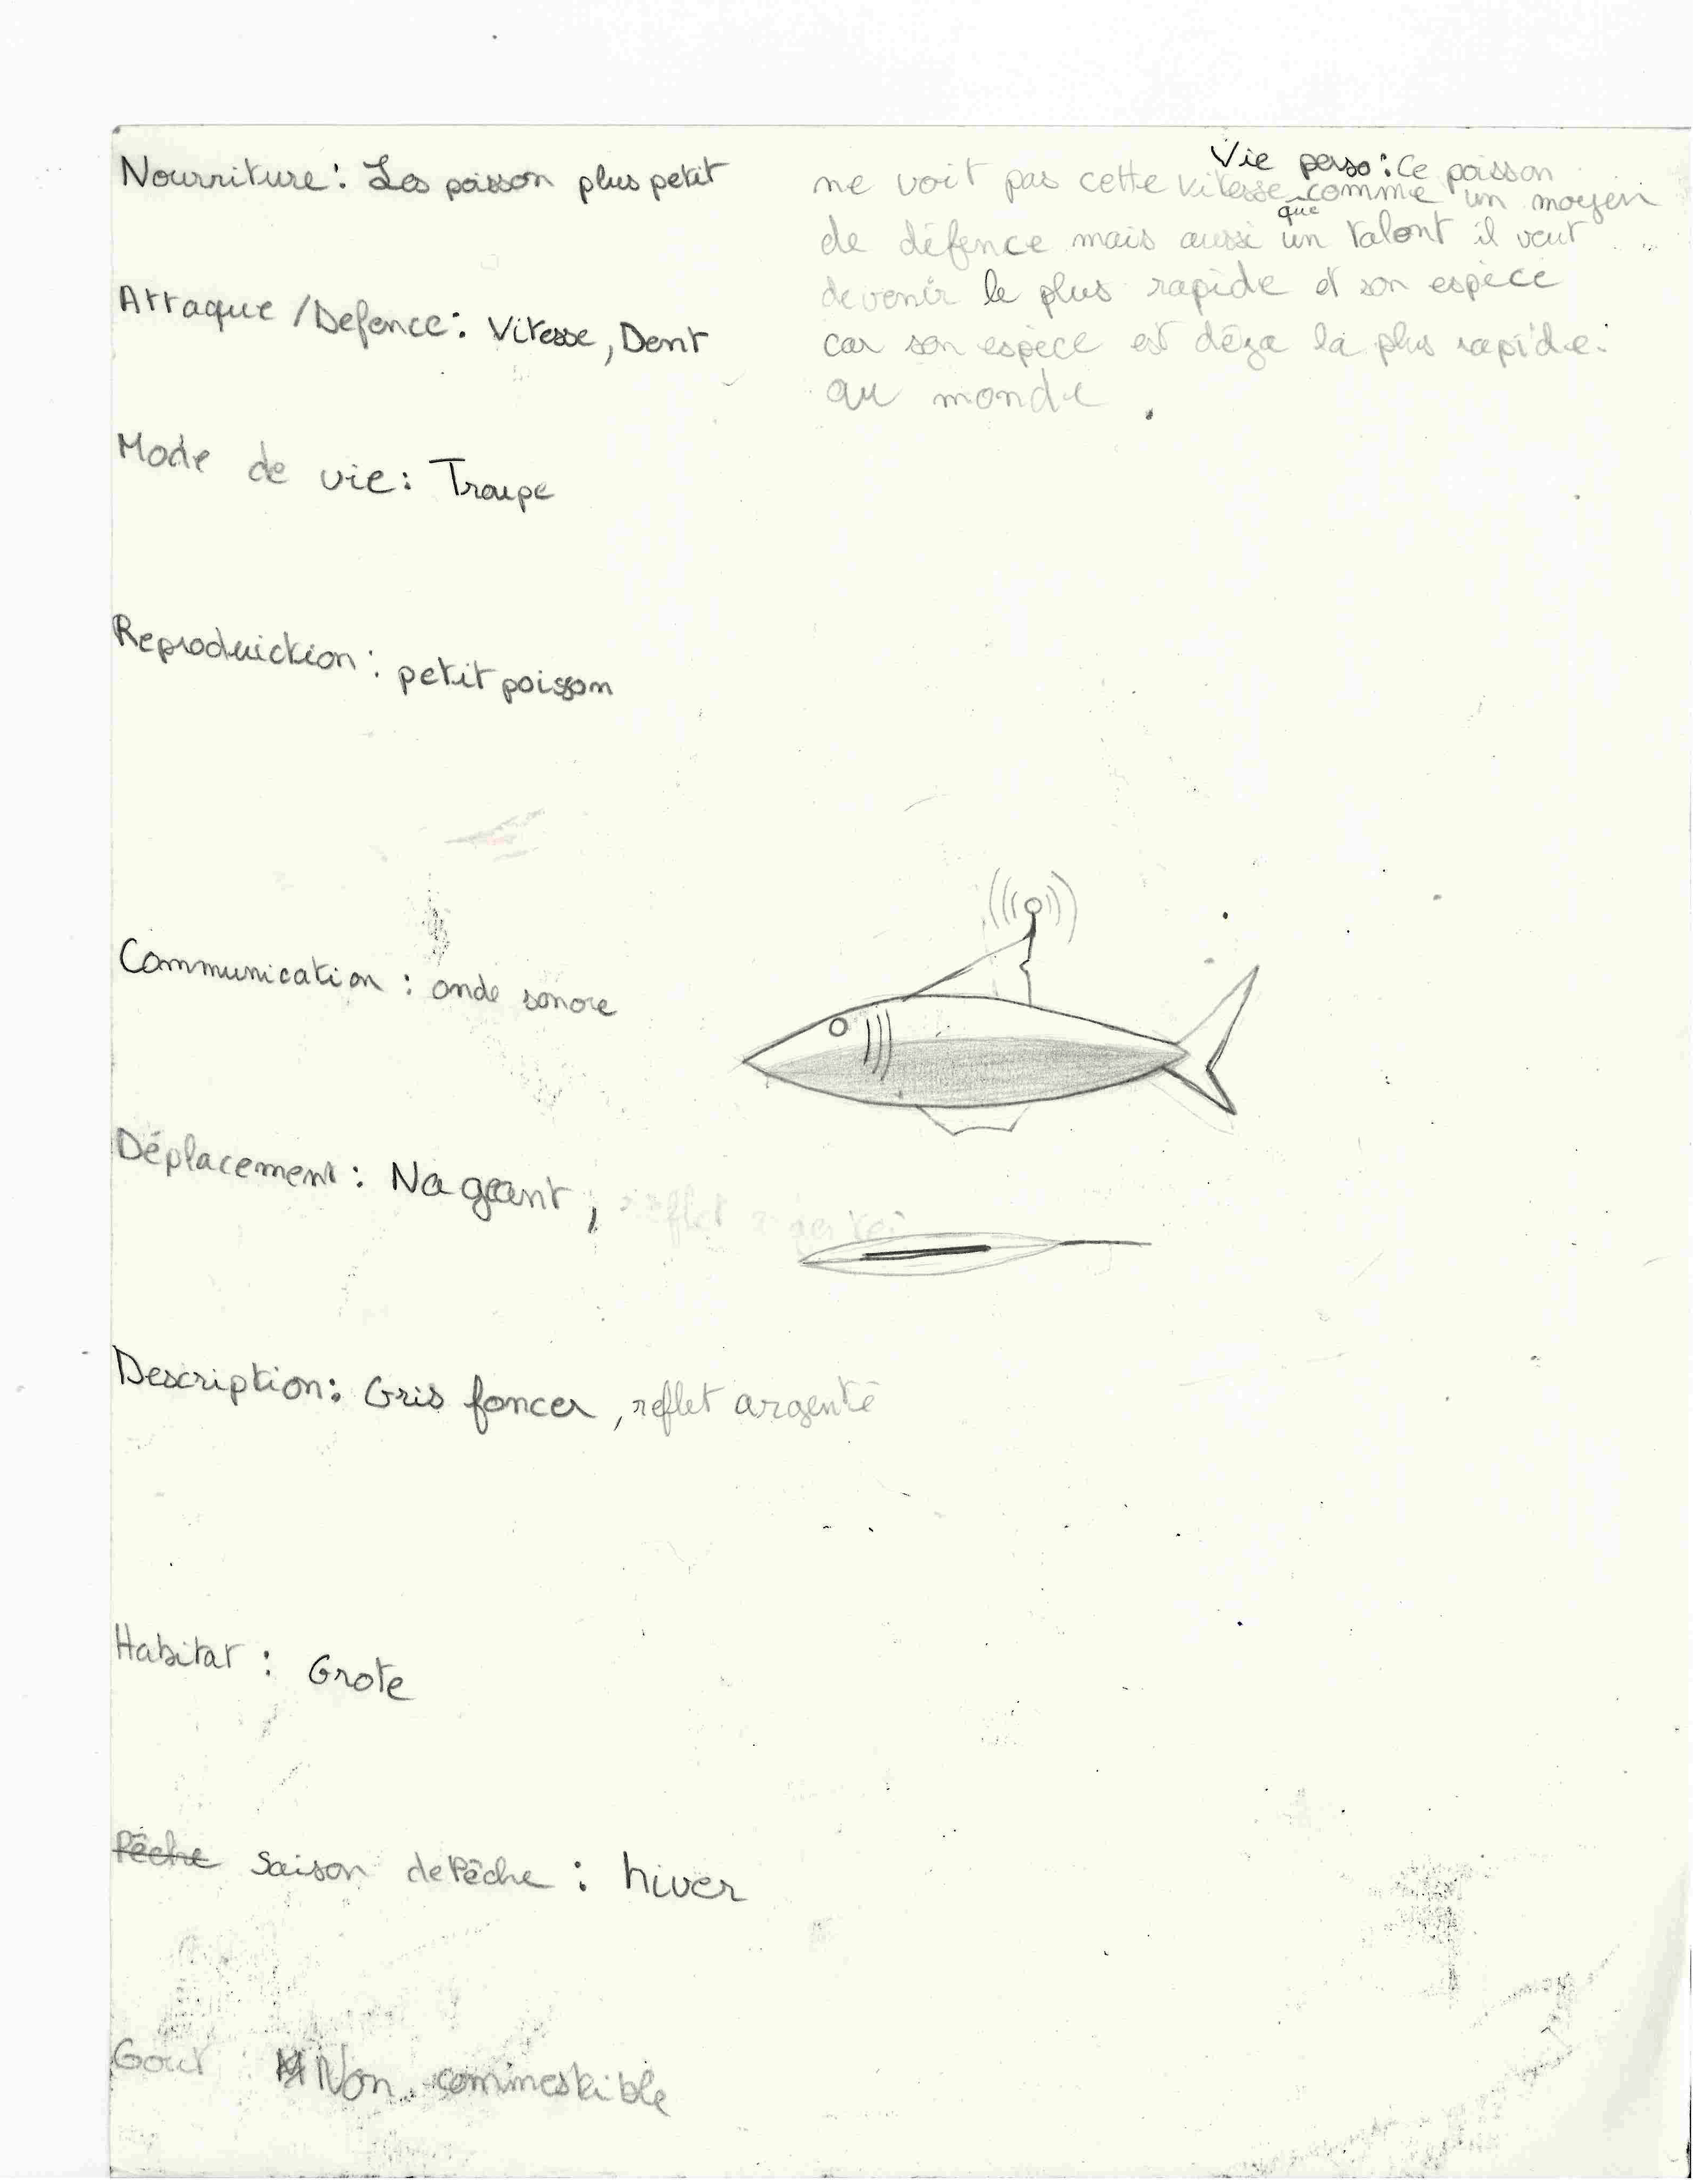 Nourriture : Les poisson plus petit
Attaque / Defence : Vitesse, Dent
Mode de vie : Troupe
Reproduiction : petit poisson
Communication : onde sonore
Déplacement : Nageant,
Description : Gris foncer, reflet argenté
Habitat : Grote
Pêche saison de Pêche : hiver
Gout : Non commestible
Vie perso : Ce poisson
ne voit pas cette vitesse comme un moyen
de défence mais aussi que un talont il veut
devenir le plus rapide et son espèce
car son espèce est déza la plus rapide
au monde.